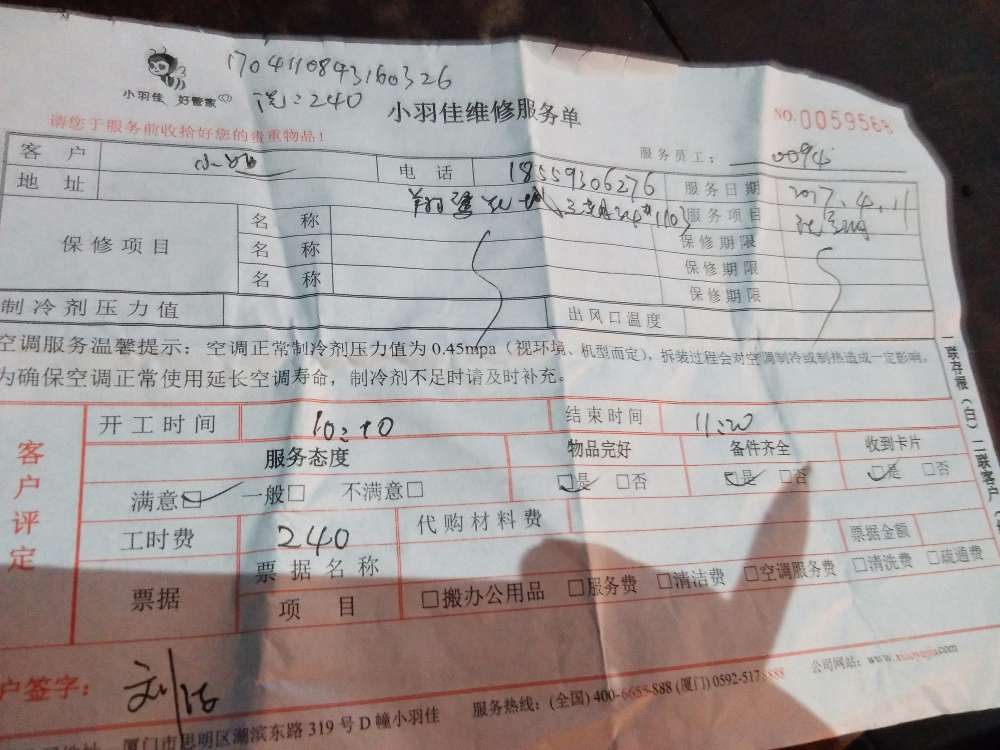 1704110843160326
小羽佳 好管家
洗:240
小羽佳维修服务单
NO.0059568
请您于服务前收拾好您的贵重物品!
服务员工: 0094
客户 电话 18559306276 服务日期 2017.4.11
地址 服务项目
保修项目 名称 保修期限
名称 保修期限
名称 保修期限
制冷剂压力值 出风口温度
空调服务温馨提示:空调正常制冷剂压力值为0.45mpa(视环境、机型而定),拆装过程会对空调制冷或制热造成一定影响,
为确保空调正常使用延长空调寿命,制冷剂不足时请及时补充。
一联存根(白)二联客户
客户评定
开工时间 10:10 结束时间 11:20
服务态度 物品完好 备件齐全 收到卡片
满意☑ 一般□ 不满意□ ☑是 □否 ☑是 □否 ☑是 □否
工时费 240 代购材料费
票据 票据名称 票据金额
项目 □搬办公用品 □服务费 □清洁费 □空调服务费 □清洗费 □疏通费
户签字:
公司网站:www.xiaoyujia.com
服务热线:(全国)400-6655-888(厦门)0592-5178888
厦门市思明区湖滨东路319号D幢小羽佳